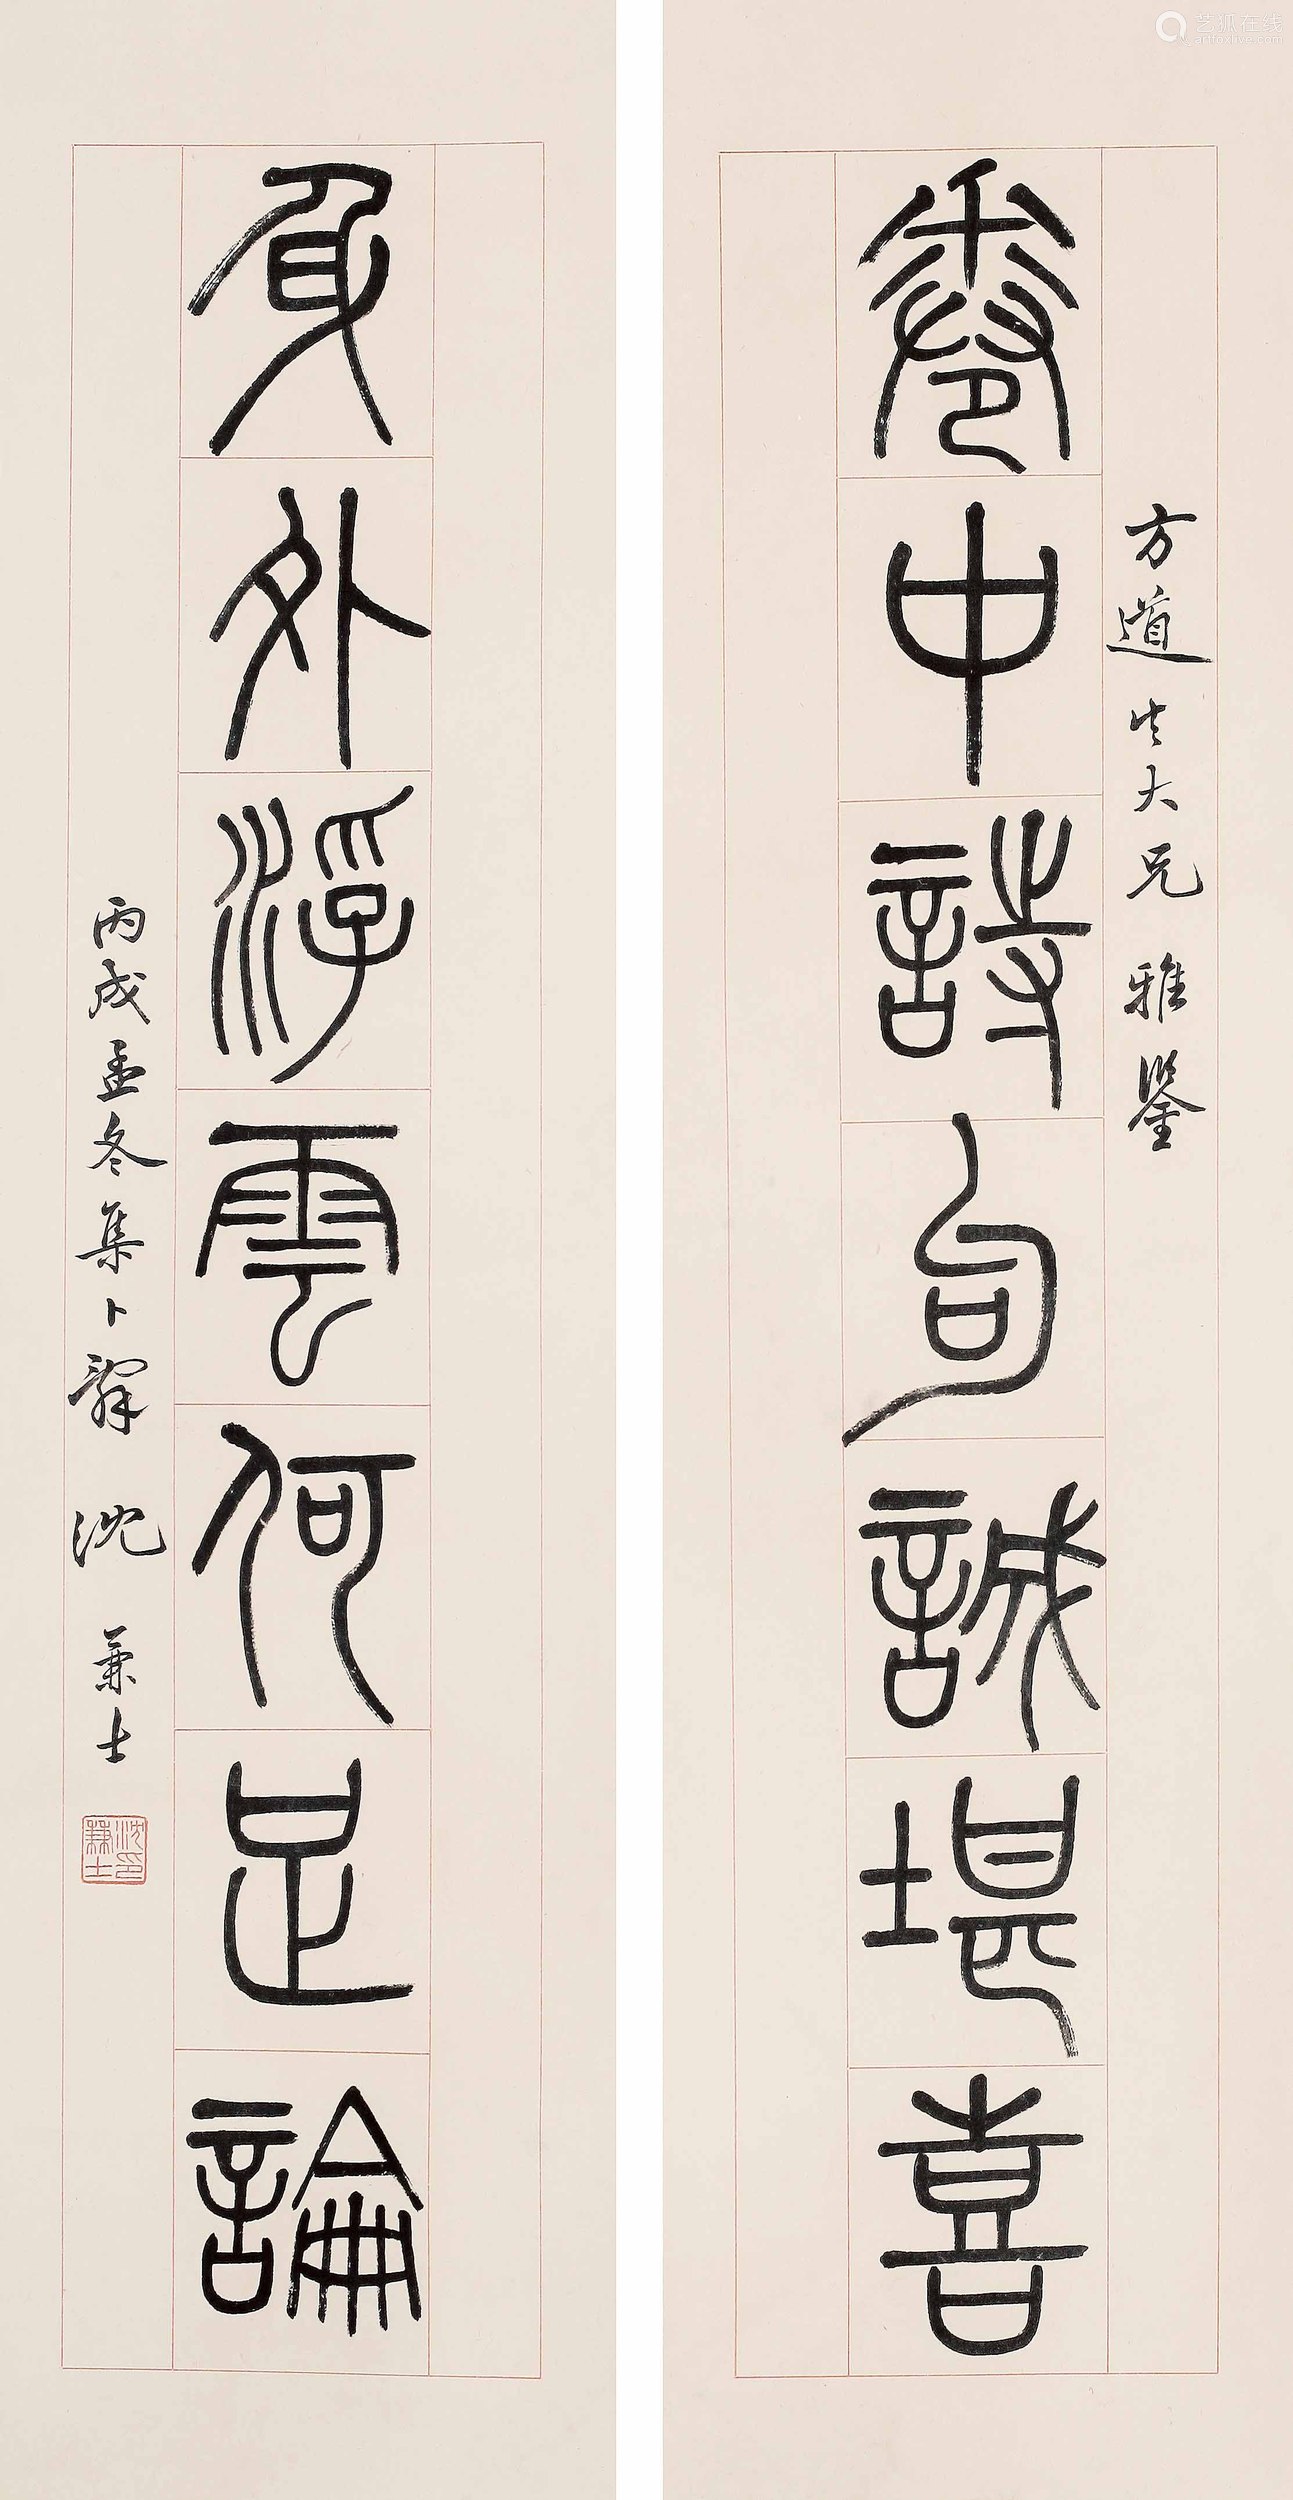 卷中詩句誠堪喜
方道先大兄 雅鑒
身外浮雲何足論
丙戌孟冬集卜辭 沈兼士
沈兼士印
艺狐在线
artfoxlive.com